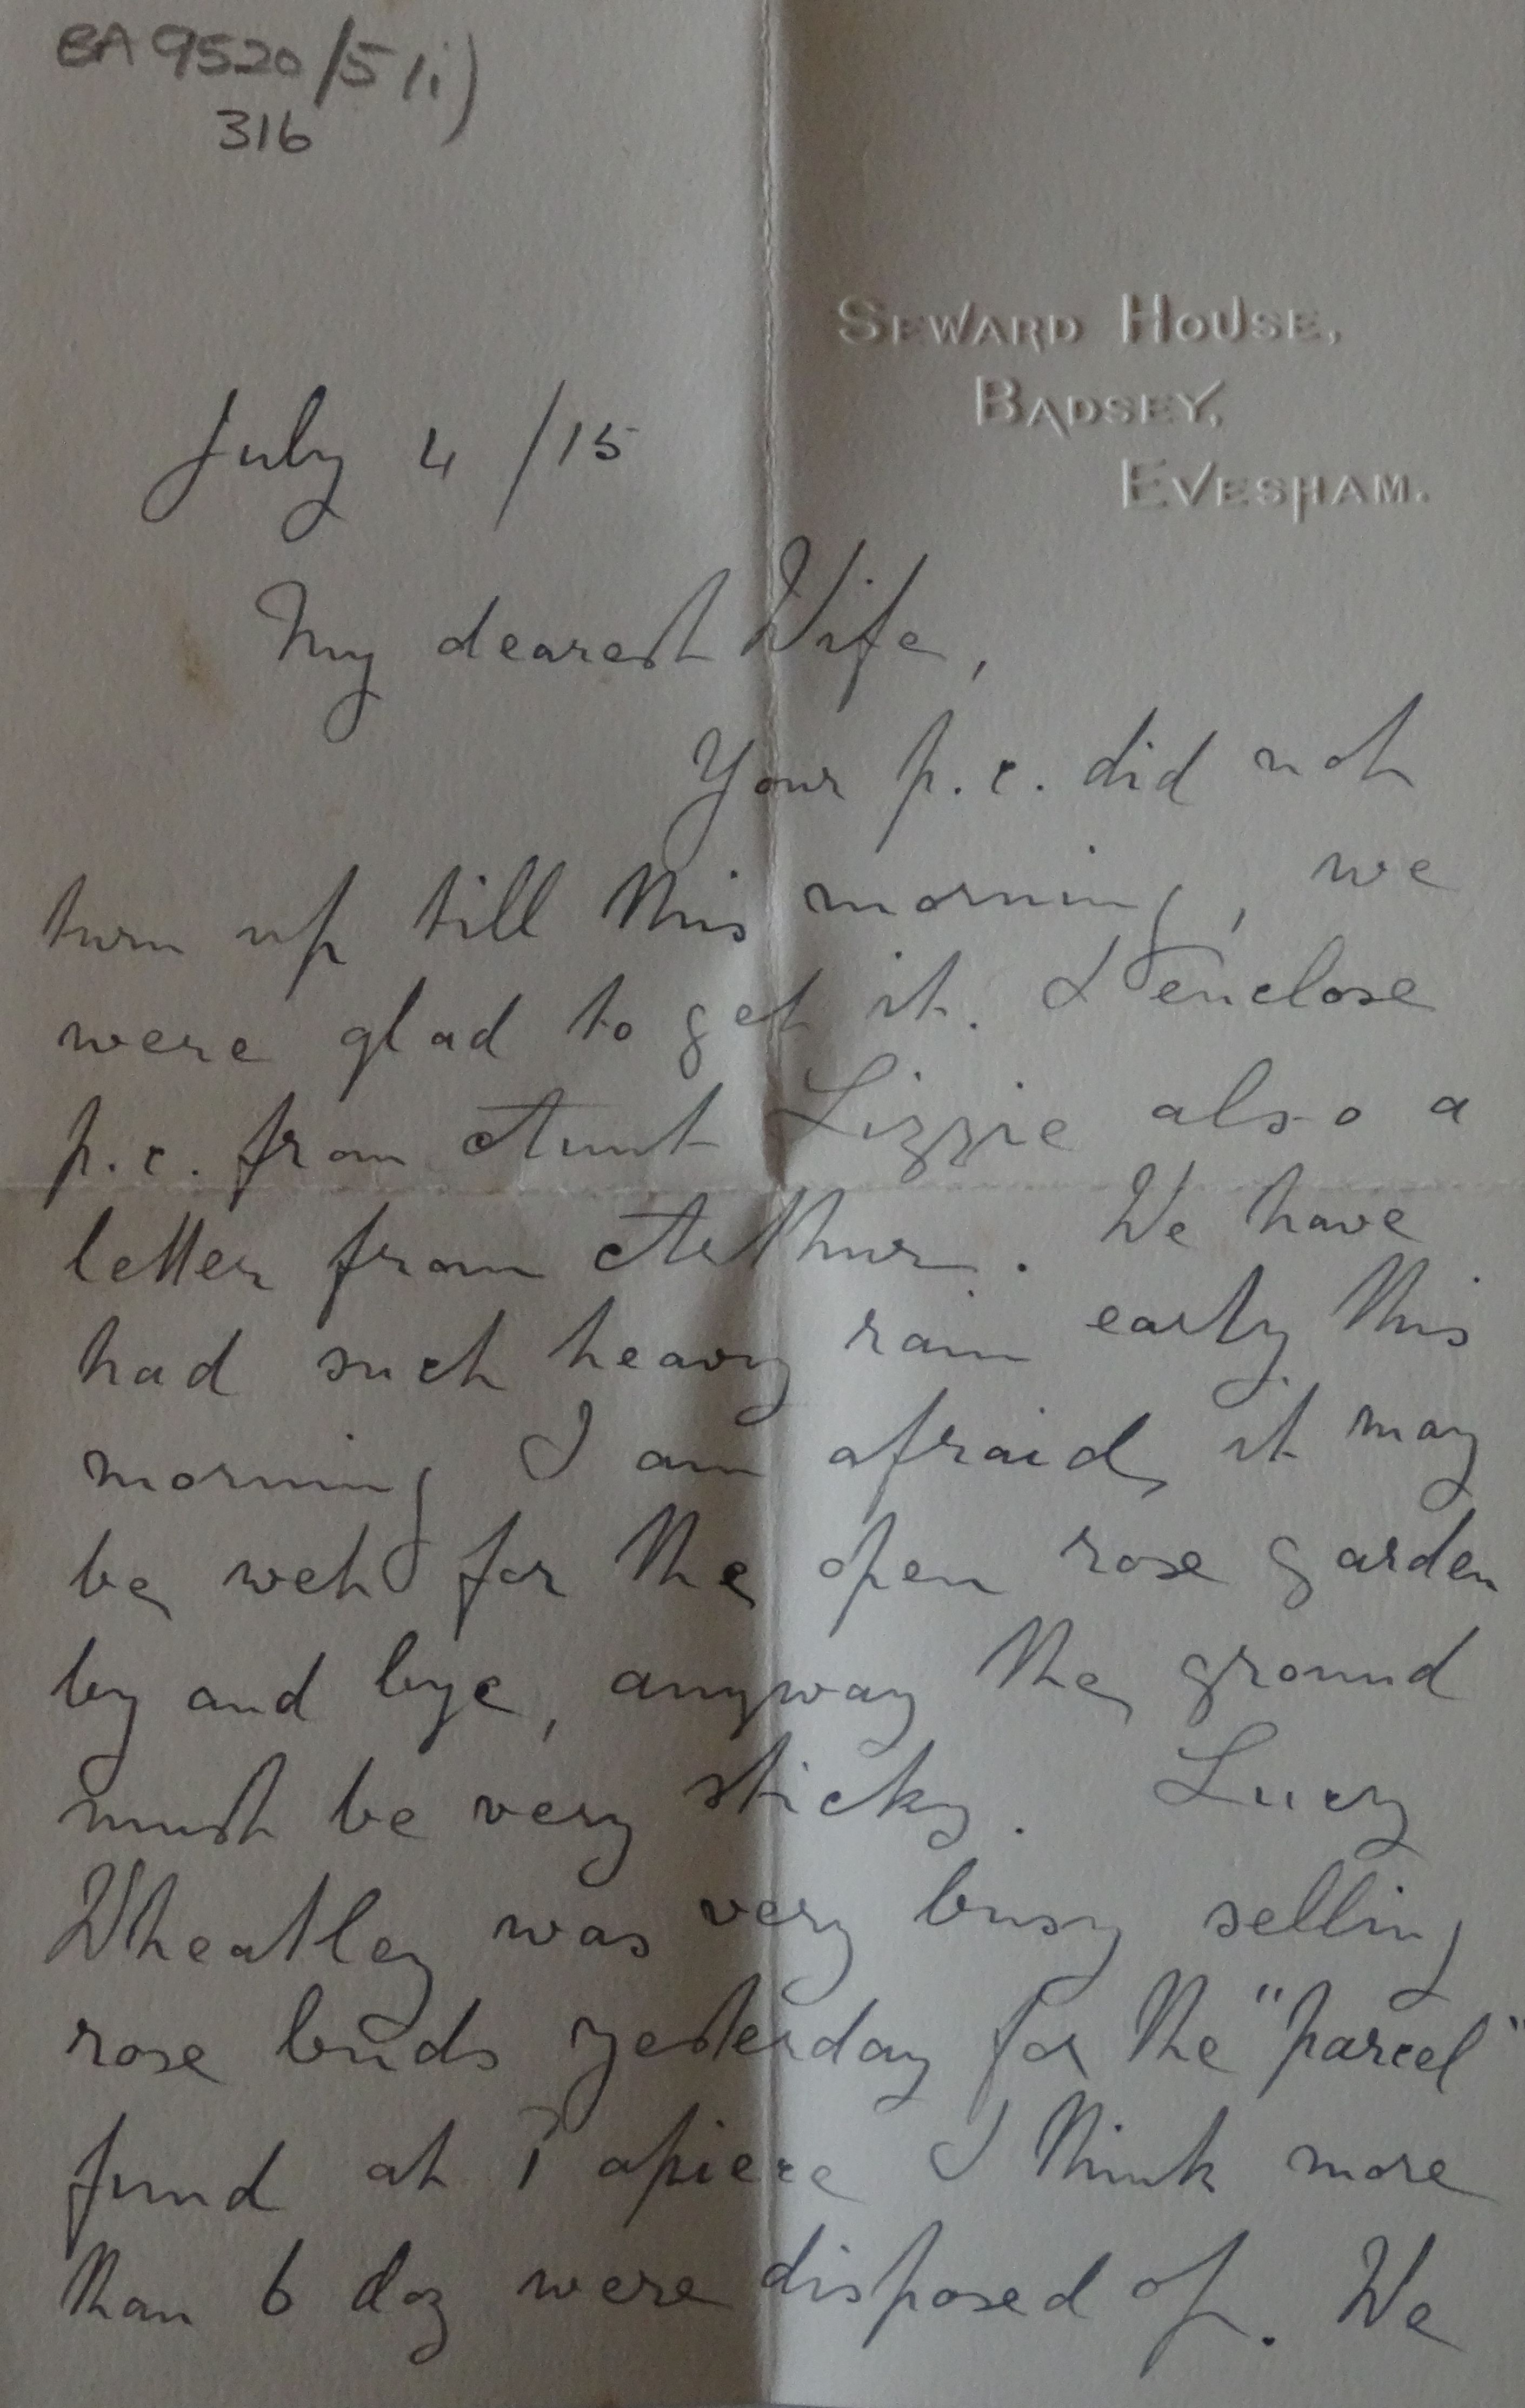 BA 9520/5 (i)
316
SEWARD HOUSE,
BADSEY,
EVESHAM.
July 4 /15
My dearest Wife,
Your p.c. did not
turn up till this morning, we
were glad to get it. I enclose
p.c. from Aunt Lizzie also a
letter from Arthur. We have
had such heavy rain early this
morning I am afraid it may
be wet for the open rose garden
by and bye, anyway the ground
must be very sticky. Lucy
Wheatley was very busy selling
rose buds yesterday for the "parcel"
fund at 1d apiece I think more
than 6 doz were disposed of. We